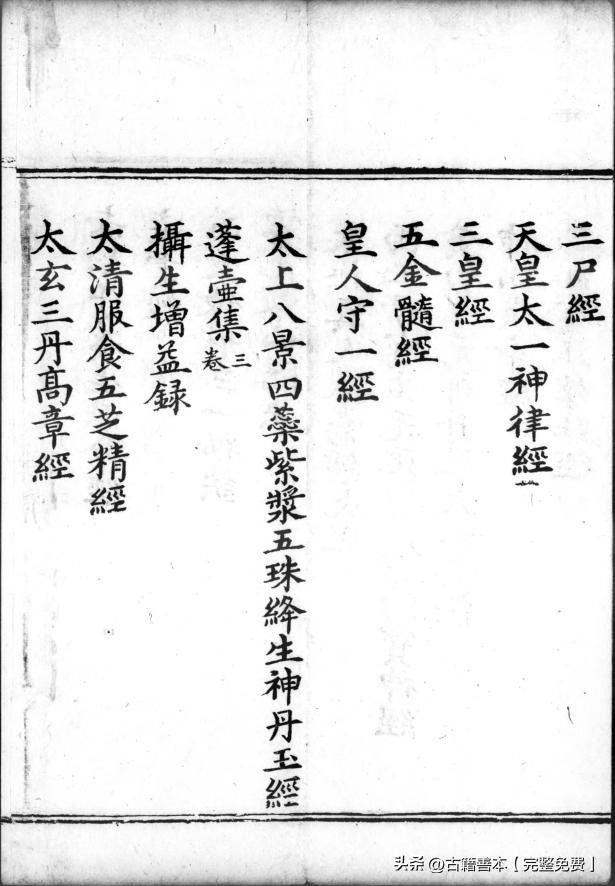 三尸經
天皇太一神律經
三皇經
五金髓經
皇人守一經
太上八景四蘂紫漿五珠絳生神丹玉經
蓬壷集三卷
攝生增益録
太清服食五芝精經
太玄三丹髙章經
头条 @古籍善本【完整免费】